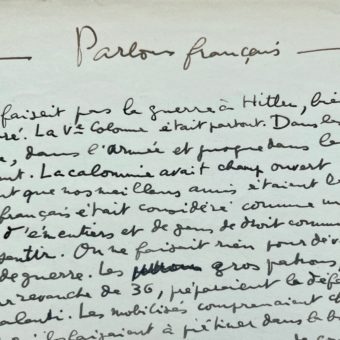 — Parlons français —
faisait pas la guerre à Hitler, bie
ré. La Ve Colonne était partout. Dans les
e, dans l'armée et jusque dans le
nt. La calomnie avait champ ouvert
nt que nos meilleurs amis étaient l
français était considéré comme un
d'émeutiers et de gens de droit commun
sentir. On ne faisait rien pour dév
de guerre. Les gros patrons,
revanche de 36, préparaient la défa
alenti. Les mobilisés comprenaient
ils faisaient à piétiner dans la b